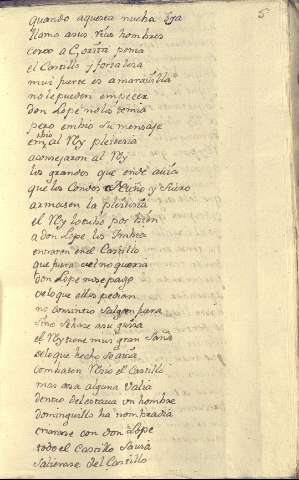 5
quando aquesta mucha
llamo a sus rricos hombres
cerco a Çorita ponia
el Castillo y fortaleza
mui fuerte es a marauilla
no le pueden empecer
don Lope no lo temia
pero embio su mensaje
al Rey pleitesia
aconsejaron al Rey
los grandes que ende auia
que los Condes Nuño y Suero
armasen la pleitesia
el Rey lo tubo por bien
a don Lope los Imbia
entraron en el Castillo
que para ver lo queria
don Lope no se pago
de lo que ellos pedian
no consintio salgan fuera
sino
el Rey tiene mui gran saña
de lo que hecho se auia
combaten el Castillo
mas cosa alguna valia
dentro del estaua un hombre
dominguillo ha nombradia
criarase con don Lope
todo el Castillo sauia
salierase del Castillo